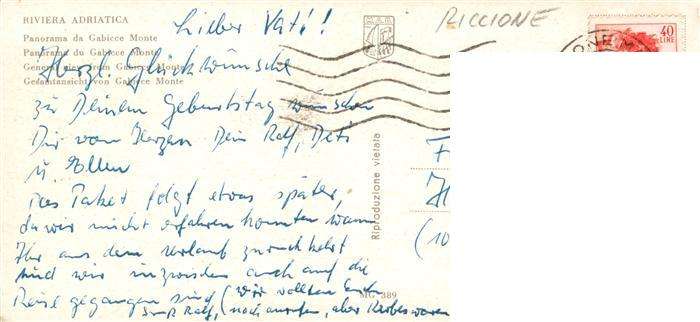 RIVIERA ADRIATICA
Panorama da Gabicce Monte
Panorama du Gabicce Monte
General view from Gabicce Monte
Gesamtansicht von Gabicce Monte
RICCIONE
40
LIRE
Lieber Vati!
Herzl. Glückwünsche
zu Deinem Geburtstag wünschen
Dir von Herzen Dein Ralf, Deti
u. Ellen
Das Paket folgt etwas später,
da wir nicht erfahren konnten wann
Ihr aus dem Urlaub zurückkehrt
sind wir inzwischen auch auf die
Reise gegangen sind (wir wollten Euch
Ralf, noch anrufen, aber
Riproduzione vietata
MG 389
(10